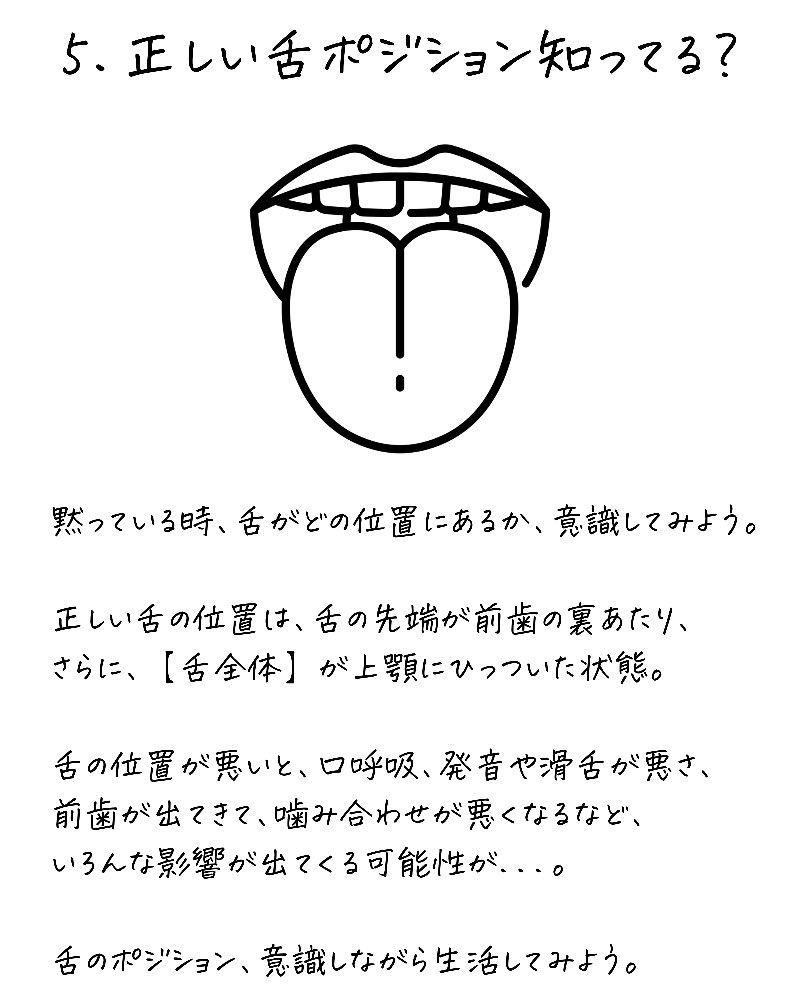 5. 正しい舌ポジション知ってる?
黙っている時、舌がどの位置にあるか、意識してみよう。
正しい舌の位置は、舌の先端が前歯の裏あたり、
さらに、【舌全体】が上顎にひっついた状態。
舌の位置が悪いと、口呼吸、発音や滑舌が悪さ、
前歯が出てきて、噛み合わせが悪くなるなど、
いろんな影響が出てくる可能性が...。
舌のポジション、意識しながら生活してみよう。